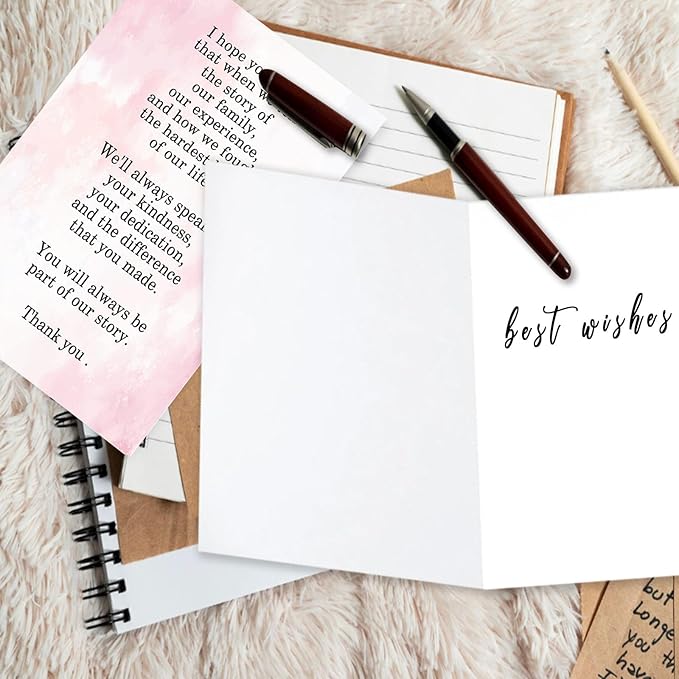 I hope yo
that when w
the story of
our family,
our experience,
and how we foug
the hardest
of our li
We'll always spea
your kindness,
your dedication,
and the difference
that you made.
You will always be
part of our story.
Thank you.
best wishes
but
longe
you th
have